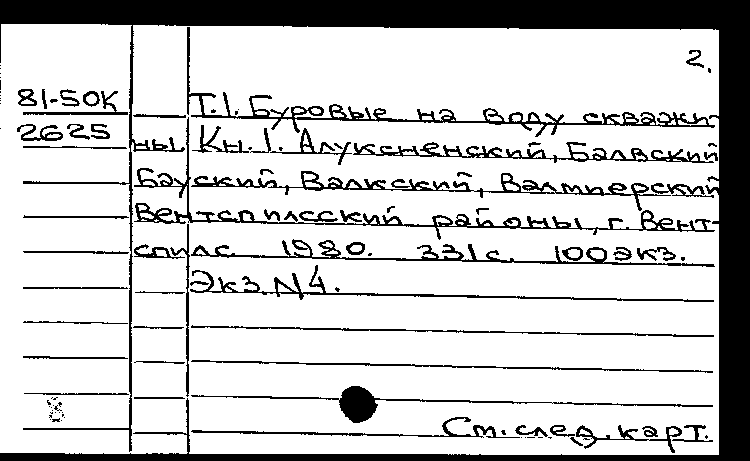 2.
81-50К Т.1. Буровые на воду скважи-
2625 ны. Кн.1. Алуксненский, Балвский
Бауский, Валкский, Валмиерский
Вентспилсский районы, г. Вент-
спилс. 1980. 331с. 100экз.
Экз.N4.
8
См.след.карт.